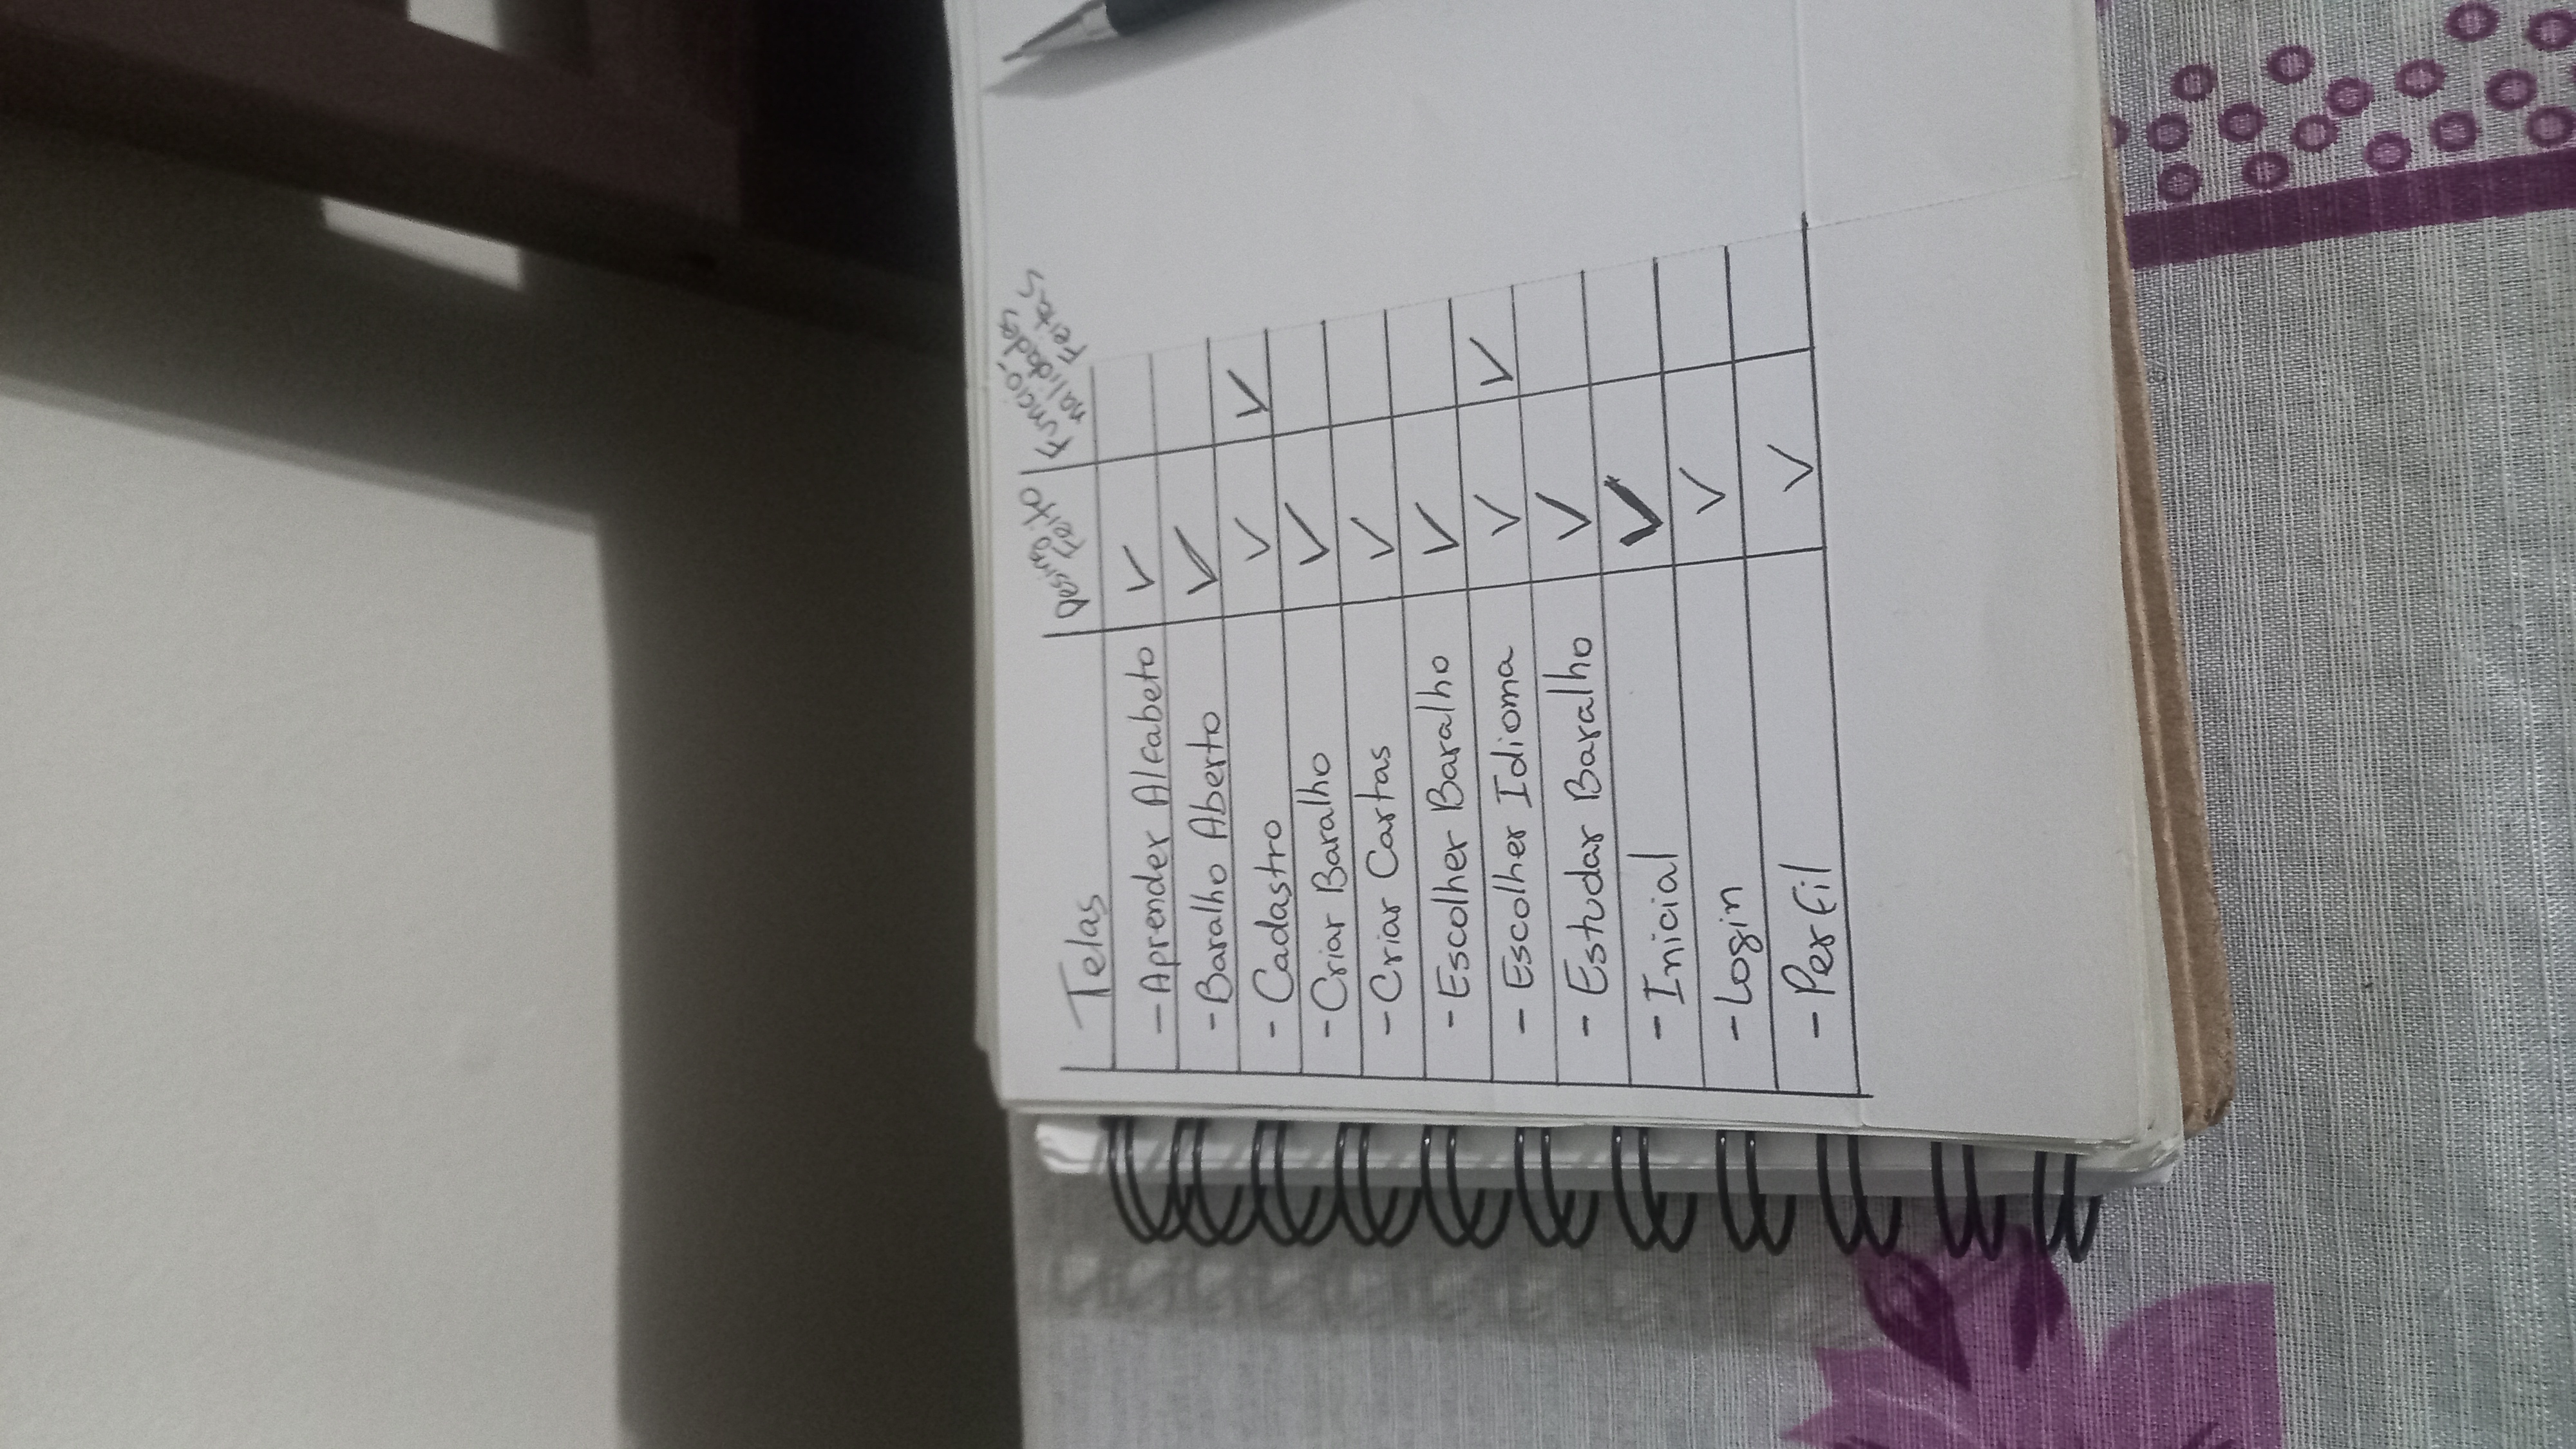 Telas Desing Feito Funcio-nalidades Feitas
- Aprender Alfabeto ✓
- Baralho Aberto ✓
- Cadastro ✓ ✓
- Criar Baralho ✓
- Criar Cartas ✓
- Escolher Baralho ✓
- Escolher Idioma ✓ ✓
- Estudar Baralho ✓
- Inicial ✓
- Login ✓
- Perfil ✓